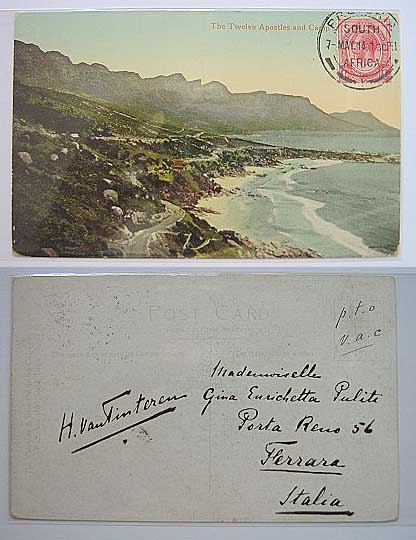 The Twelve Apostles and Camp
SOUTH
7-MAY.14.
AFRICA
POST CARD
p.t.o
v.a.c
Mademoiselle
Gina Enrichetta Puliti
H. Van Tinteren
Porta Reno 56
Ferrara
Italia